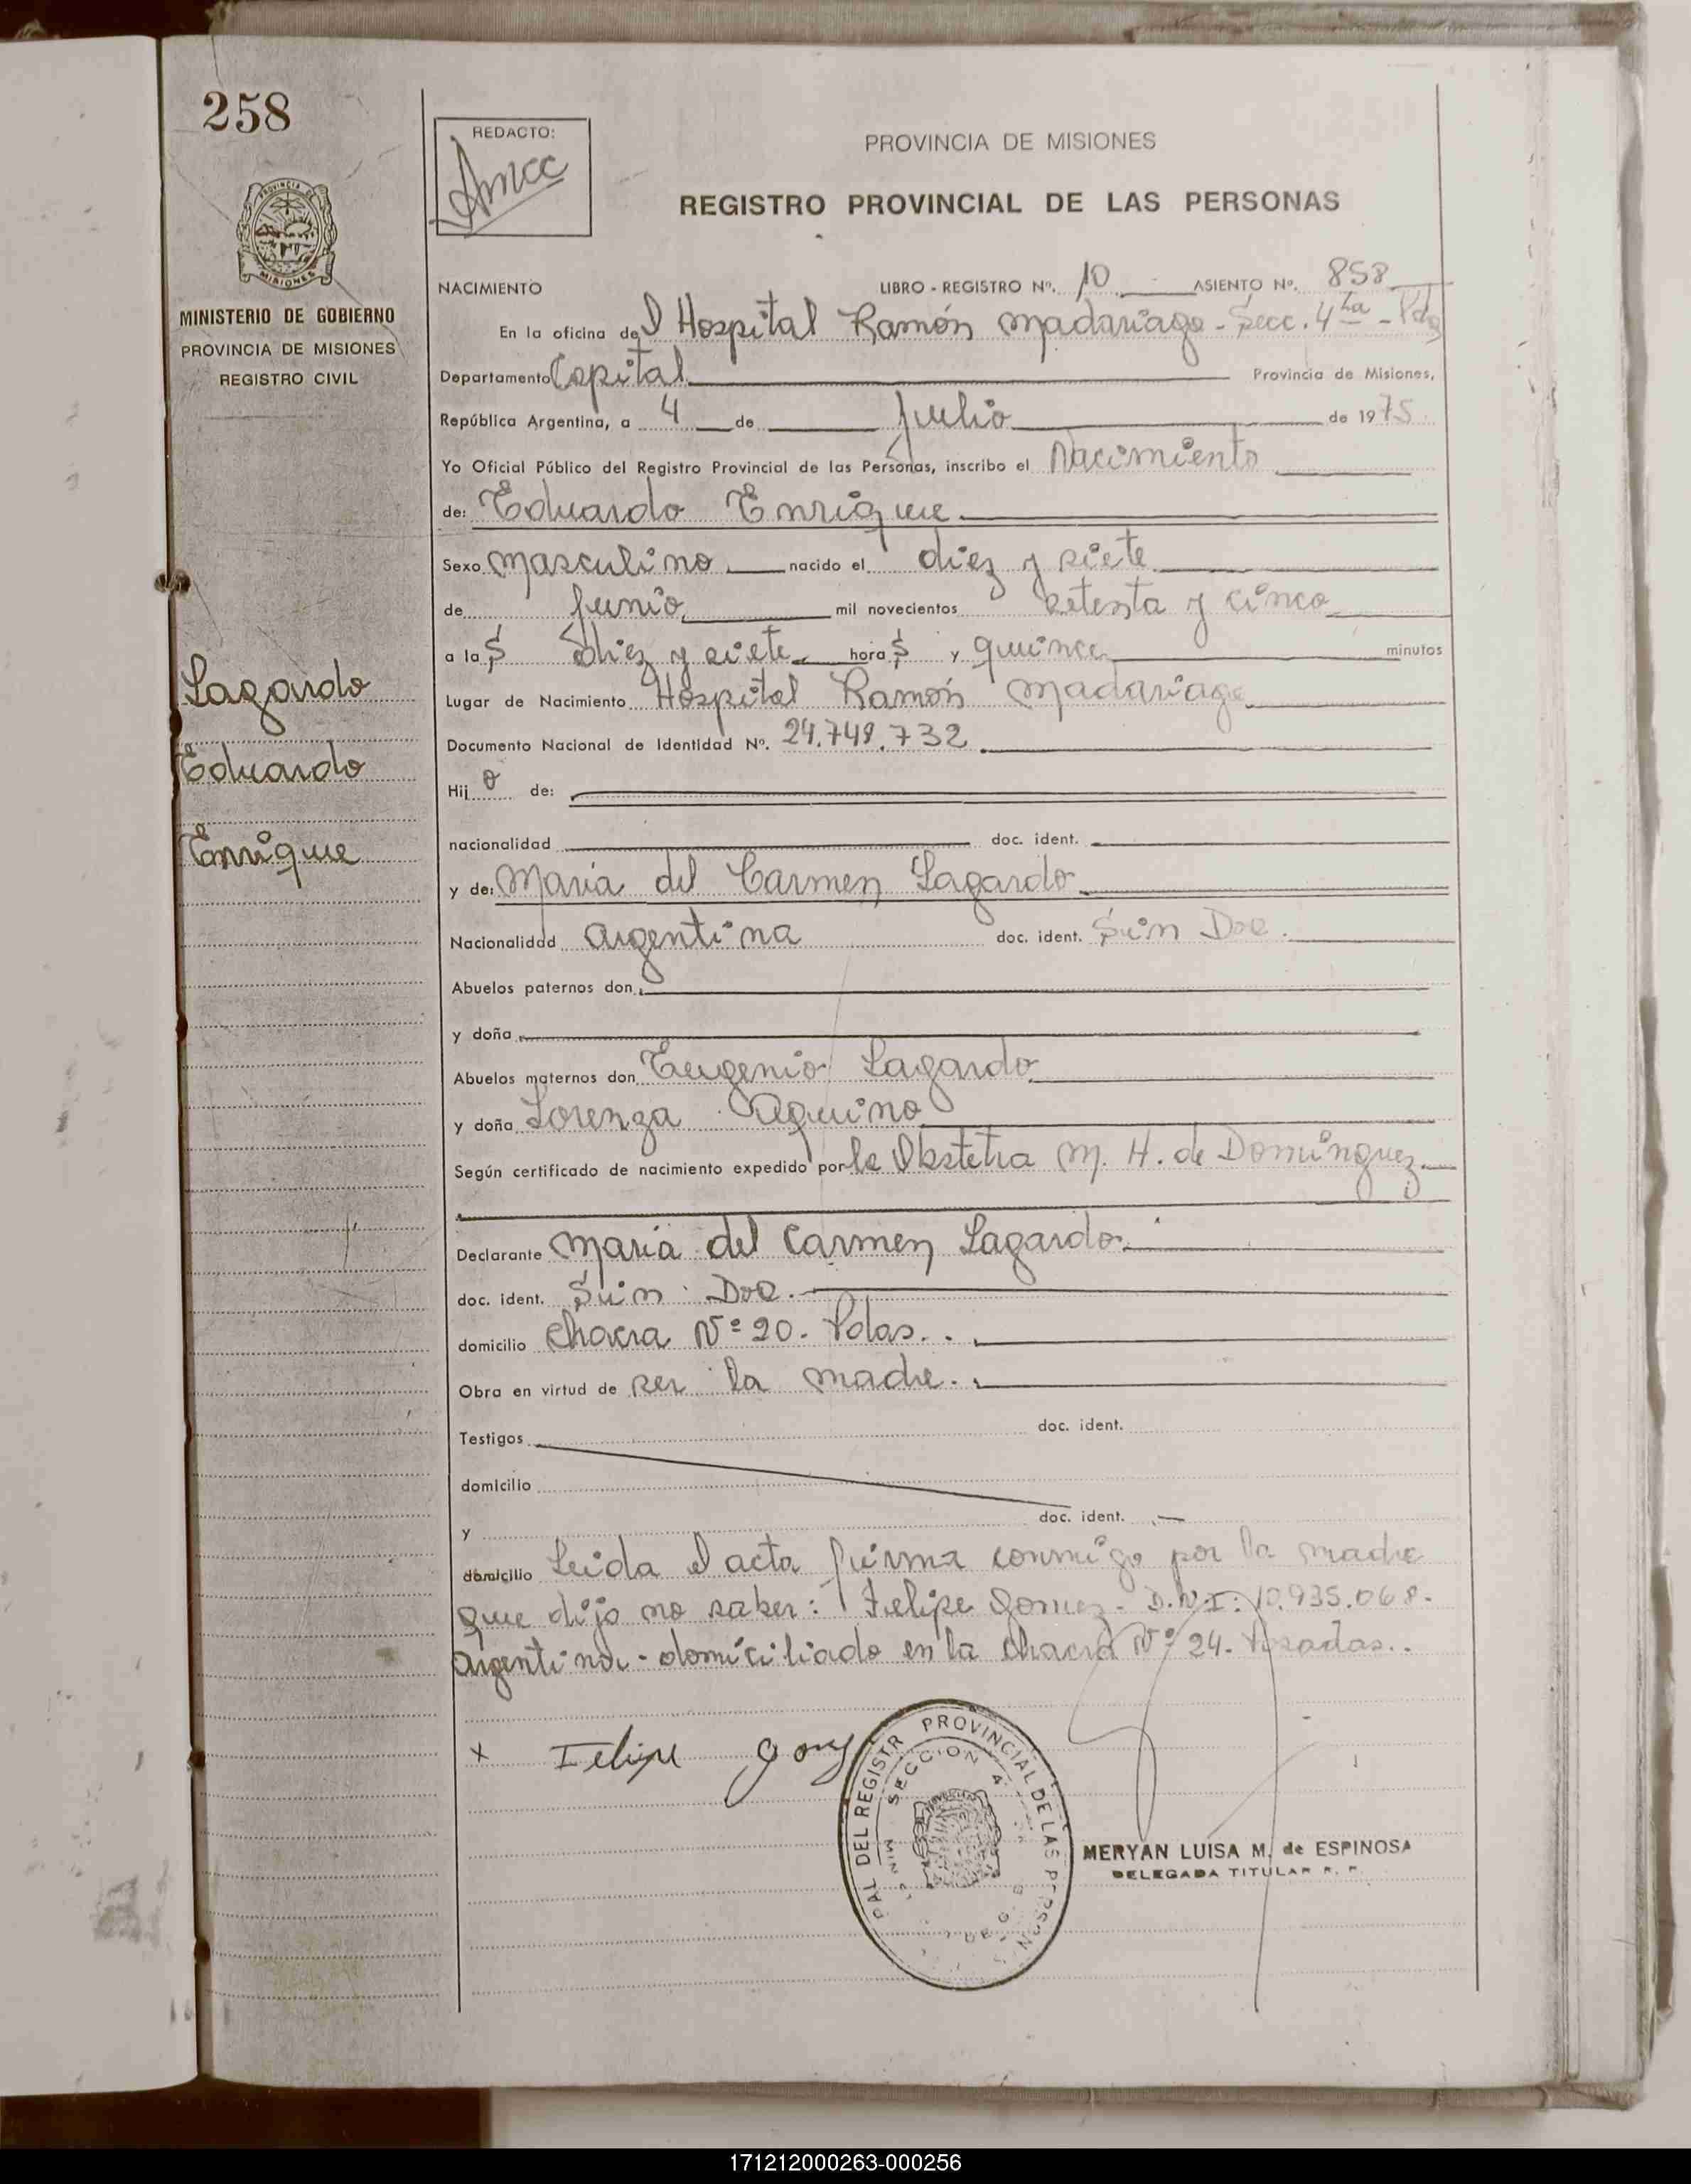 258
REDACTO:
PROVINCIA DE MISIONES
REGISTRO PROVINCIAL DE LAS PERSONAS
PROVINCIA DE
MISIONES
MINISTERIO DE GOBIERNO
PROVINCIA DE MISIONES
REGISTRO CIVIL
NACIMIENTO LIBRO - REGISTRO Nº. 10 ASIENTO Nº. 858
En la oficina del Hospital Ramón Madariaga - Secc. 4ta - Pdas
Departamento Capital Provincia de Misiones,
República Argentina, a 4 de Julio de 1975
Yo Oficial Público del Registro Provincial de las Personas, inscribo el Nacimiento
de: Eduardo Enrique
Sexo masculino nacido el diez y siete
de Junio mil novecientos setenta y cinco
a las diez y siete horas y quince minutos
Lugar de Nacimiento Hospital Ramón Madariaga
Documento Nacional de Identidad Nº. 24.749.732
Hijo de:
nacionalidad doc. ident.
y de: Maria del Carmen Lagardo
Nacionalidad argentina doc. ident. Sin Doc.
Abuelos paternos don
y doña
Abuelos maternos don Eugenio Lagardo
y doña Lorenza Aquino
Según certificado de nacimiento expedido por la Obstetra M. H. de Dominguez
Declarante Maria del Carmen Lagardo
doc. ident. Sin Doc.
domicilio Chacra Nº 20. Pdas..
Obra en virtud de ser la madre.
Testigos doc. ident.
domicilio
y doc. ident.
domicilio Leida el acta firma conmigo por la madre
que dijo no saber: Felipe Gomez - D.N.I: 10.935.068.
Argentino - domiciliado en la chacra Nº 24. Posadas..
Lagardo
Eduardo
Enrique
x Felipe Gomez
PAL DEL REGISTR PROVINCIAL DE LAS PERSON
SECCION 4
MERYAN LUISA M. de ESPINOSA
DELEGADA TITULAR R. P.
171212000263-000256